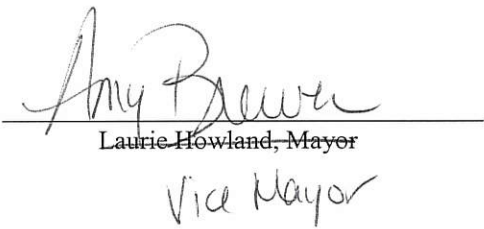 Amy Brewer
Laurie Howland, Mayor
Vice Mayor